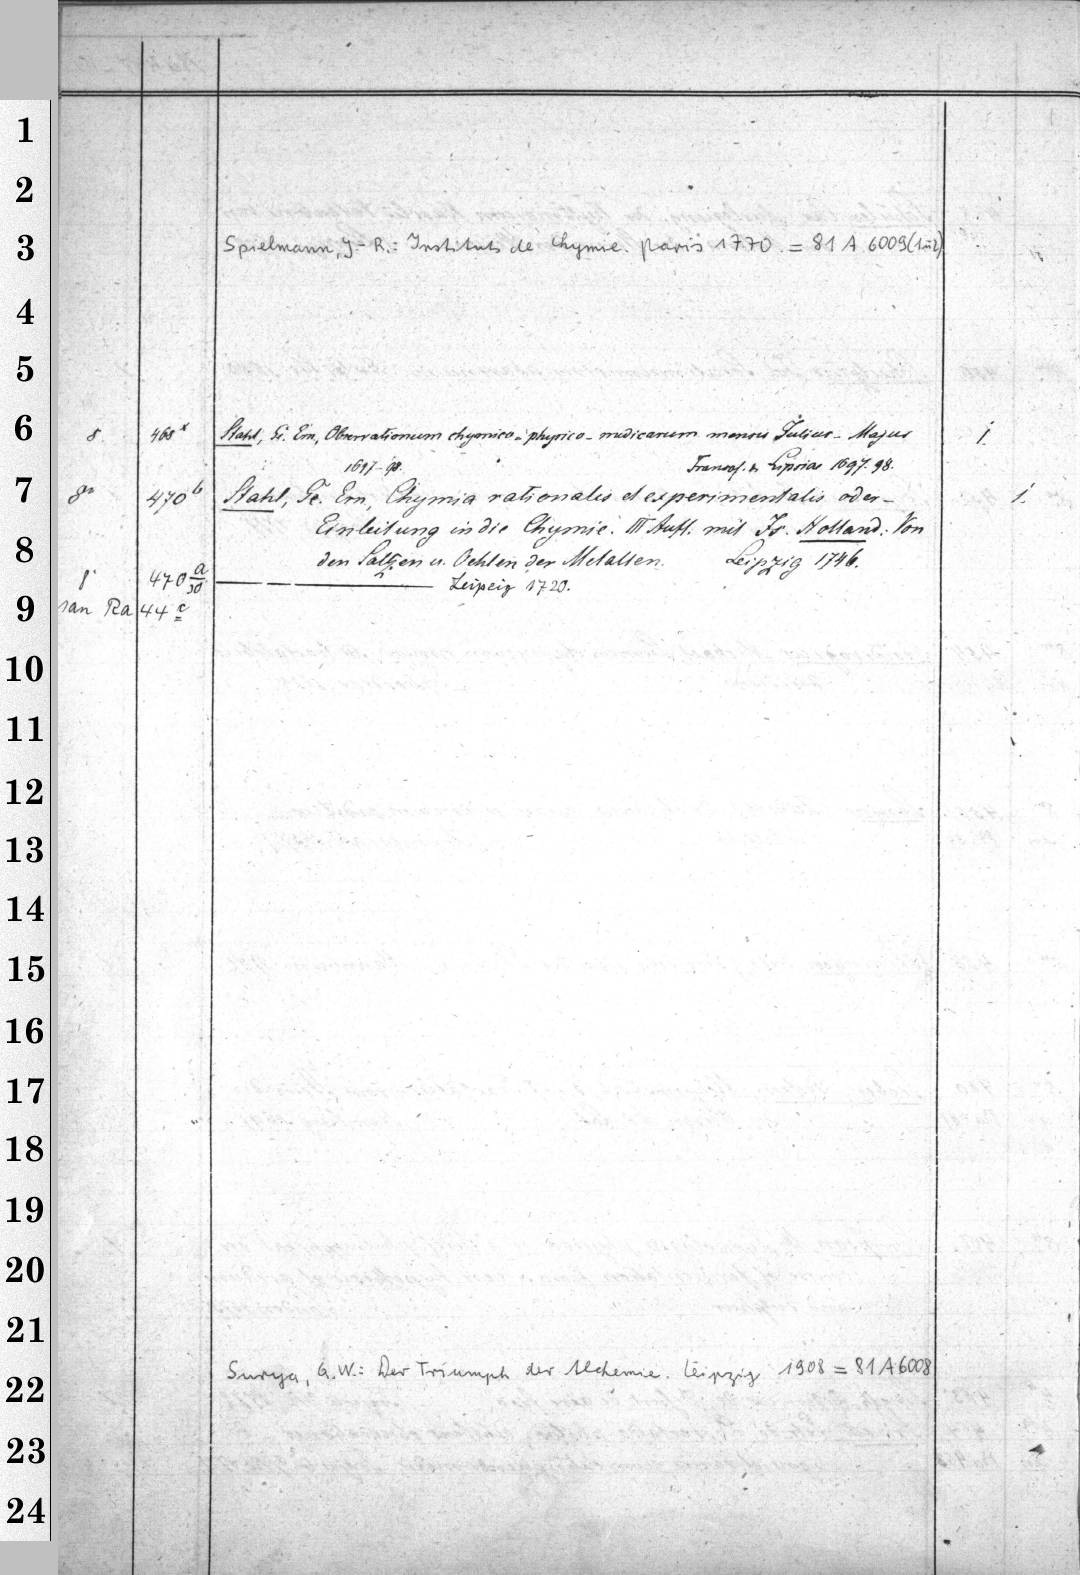 1
2
3 Spielmann, J-R.: Instituts de Chymie. Paris 1770. = 81 A 6009(1u2)
4
5
6 8. 468x Stahl, G. Ern, Observationum chymico-physico-medicarum mensis Julius-Majus 1
1697-98. Francof. & Lipsiae 1697.98.
7 8° 470b Stahl, Ge. Ern, Chymia rationalis et experimentalis oder- 1.
Einleitung in die Chymie. III Aufl. mit Is. Holland: Von
8 den Saltzen u. Oehlen der Metallen. Leipzig 1746.
470 a/30 Leipzig 1720.
9 Ra 44 c
10
11
12
13
14
15
16
17
18
19
20
21
22 Surya, G.W.: Der Triumph der Alchemie. Leipzig 1908 = 81 A 6008
23
24